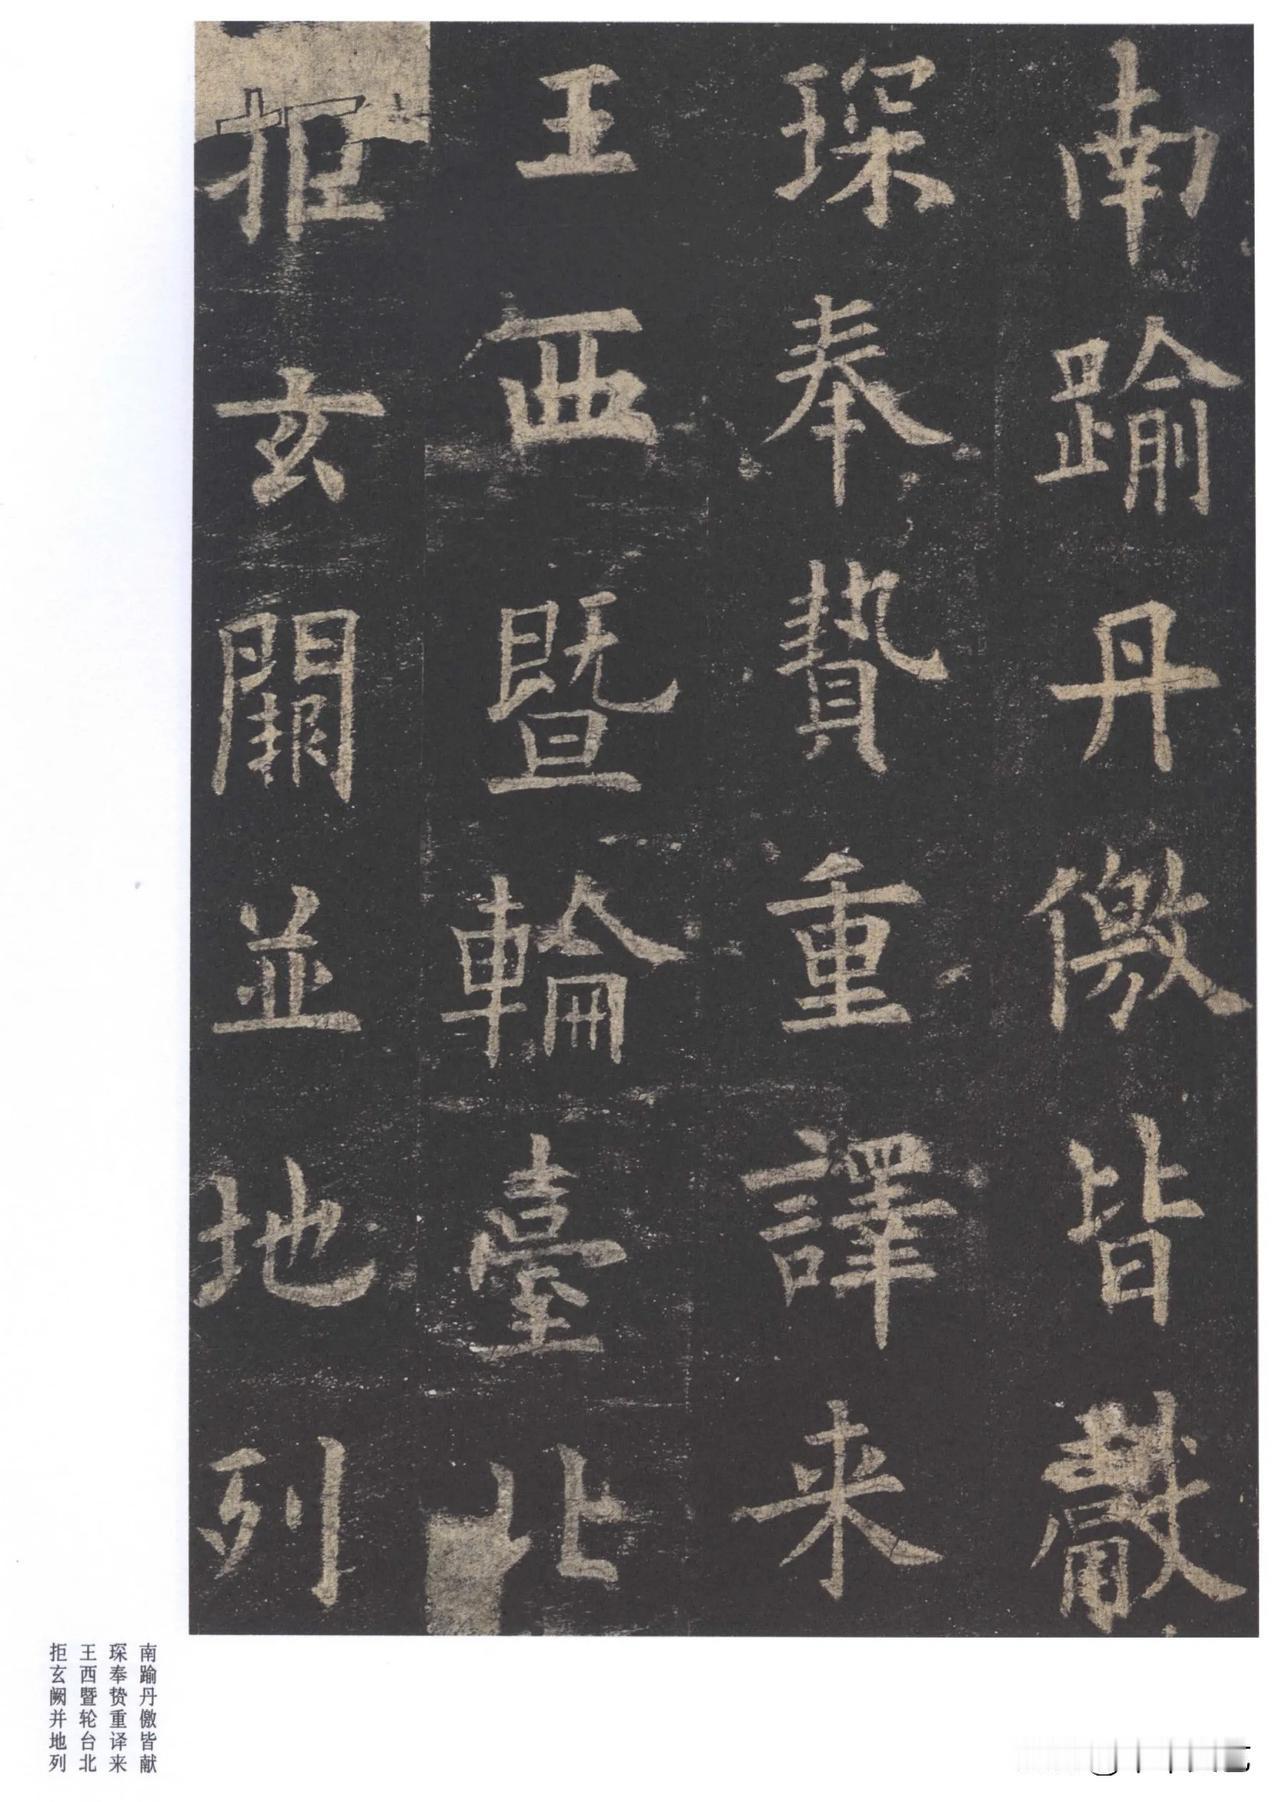 南踰丹儌皆獻
琛奉贄重譯来
王西暨輪臺北
拒玄闕並地列
南踰丹儌皆献
琛奉贽重译来
王西暨轮台北
拒玄阙并地列